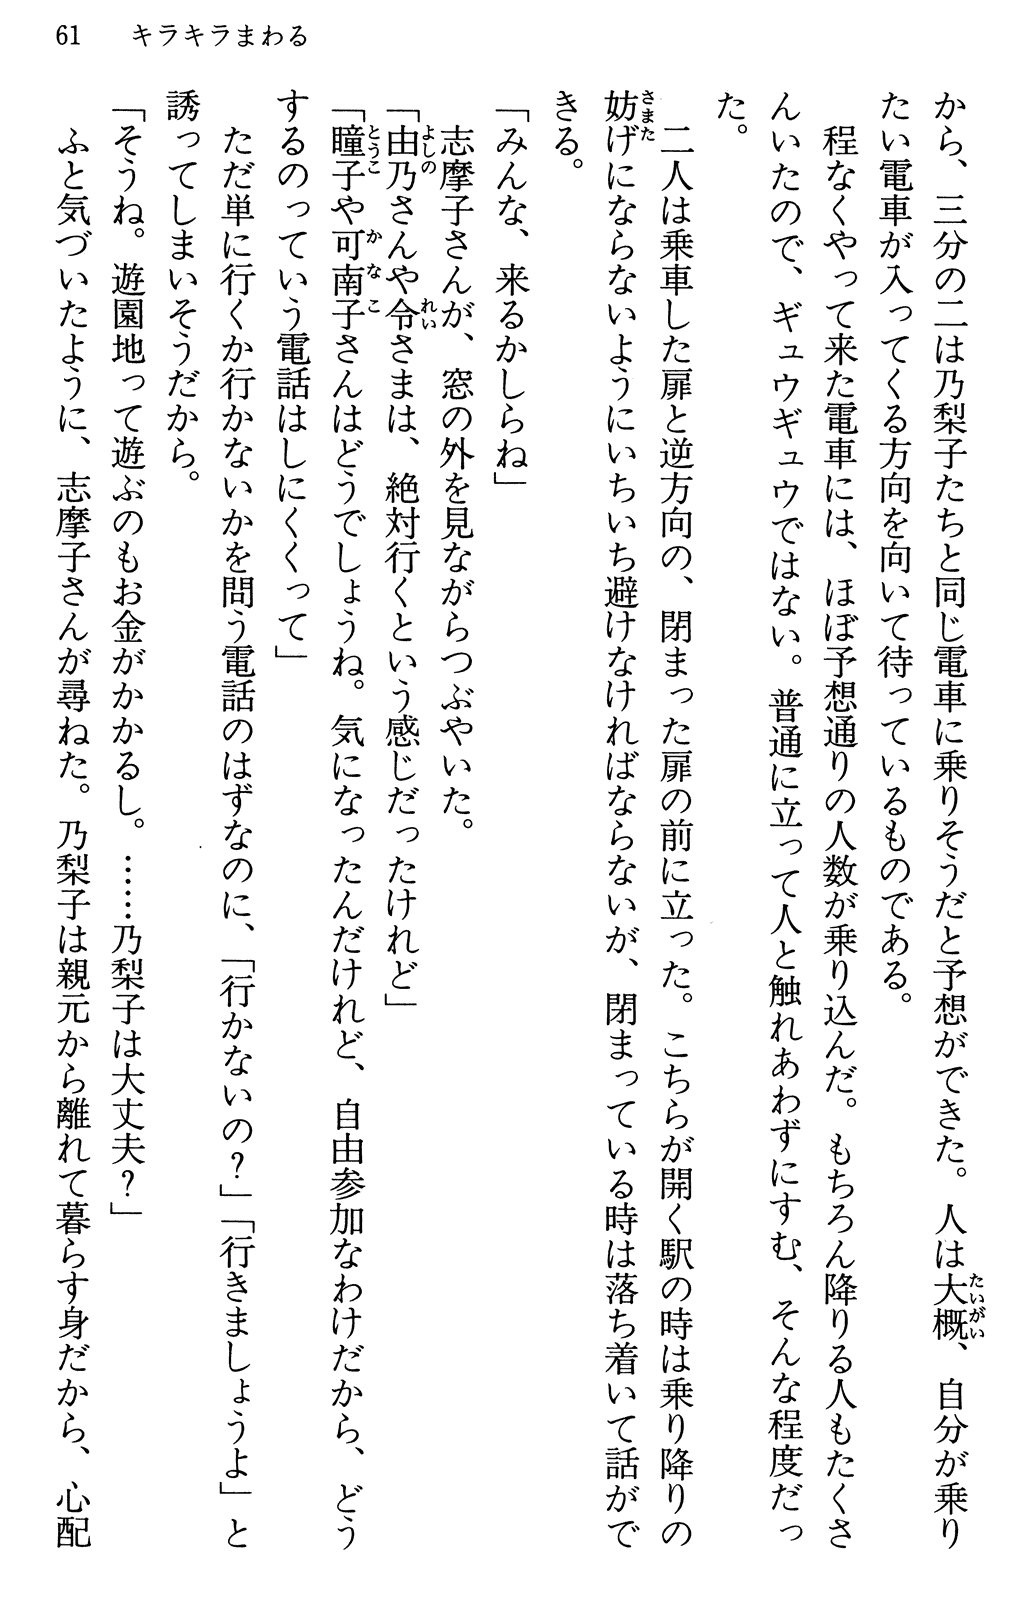 61 キラキラまわる
から、三分の二は乃梨子たちと同じ電車に乗りそうだと予想ができた。人は大概、自分が乗り
たい電車が入ってくる方向を向いて待っているものである。
程なくやって来た電車には、ほぼ予想通りの人数が乗り込んだ。もちろん降りる人もたくさ
んいたので、ギュウギュウではない。普通に立って人と触れあわずにすむ、そんな程度だっ
た。
二人は乗車した扉と逆方向の、閉まった扉の前に立った。こちらが開く駅の時は乗り降りの
妨げにならないようにいちいち避けなければならないが、閉まっている時は落ち着いて話がで
きる。
「みんな、来るかしらね」
志摩子さんが、窓の外を見ながらつぶやいた。
「由乃さんや令さまは、絶対行くという感じだったけれど」
「瞳子や可南子さんはどうでしょうね。気になったんだけれど、自由参加なわけだから、どう
するのっていう電話はしにくくって」
ただ単に行くか行かないかを問う電話のはずなのに、「行かないの？」「行きましょうよ」と
誘ってしまいそうだから。
「そうね。遊園地って遊ぶのもお金がかかるし。……乃梨子は大丈夫？」
ふと気づいたように、志摩子さんが尋ねた。乃梨子は親元から離れて暮らす身だから、心配